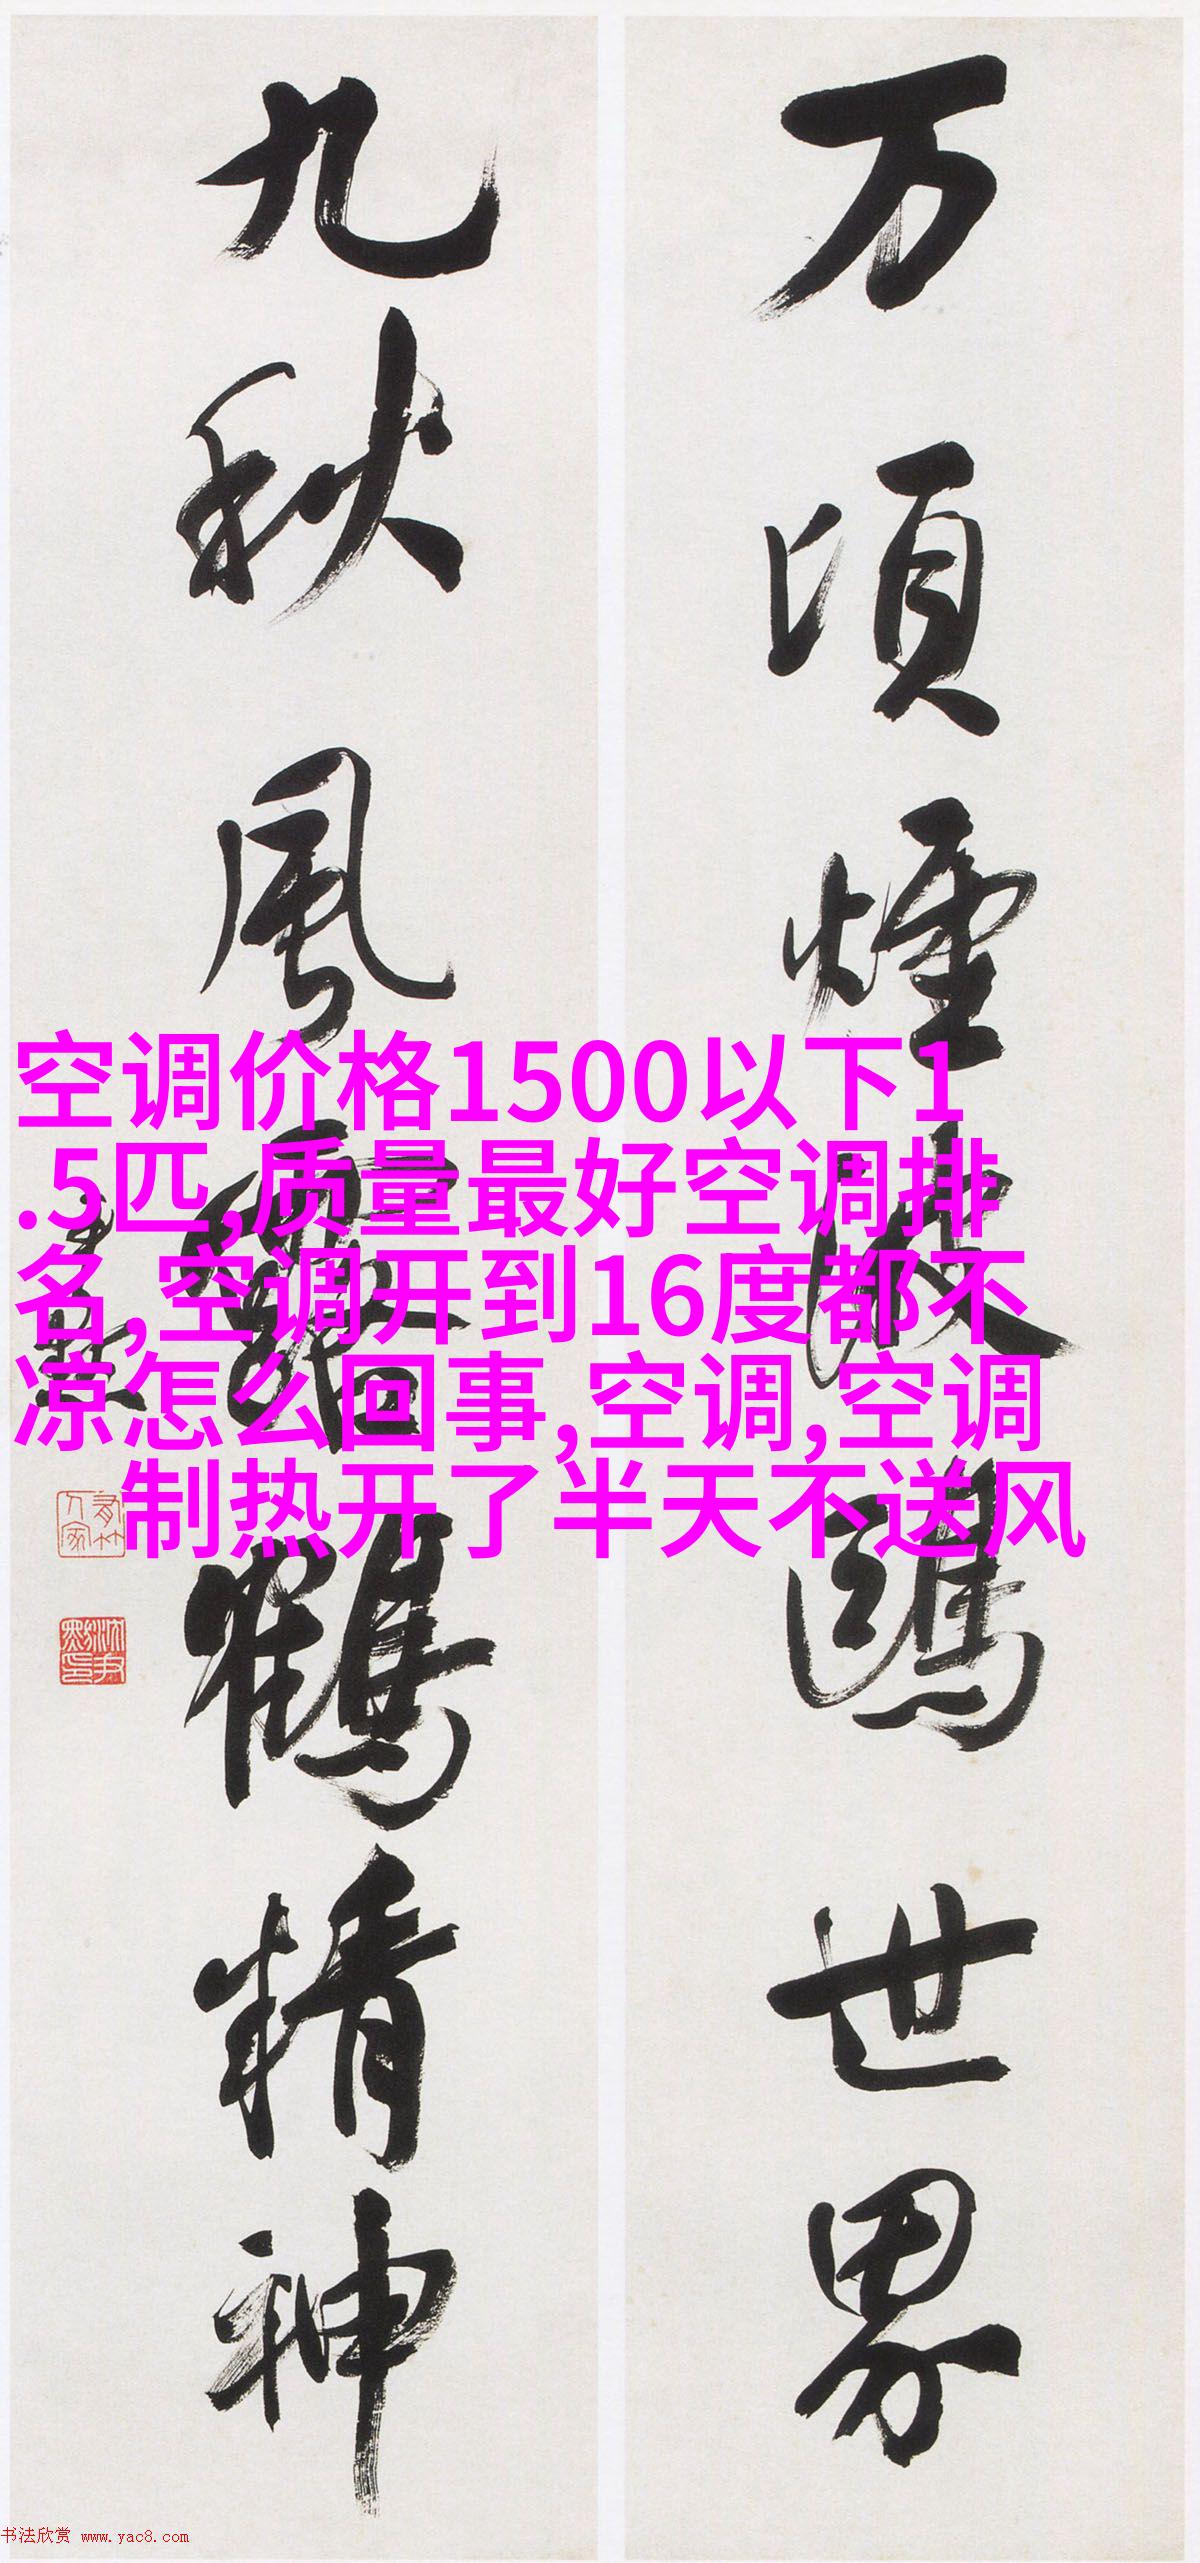 万頃煙波鷗世界
九秋風露鶴精神
尹默
沈尹默印
空调价格1500以下1
.5匹,质量最好空调排
名,空调开到16度都不
凉怎么回事,空调,空调
制热开了半天不送风
书法欣赏 www.yac8.com